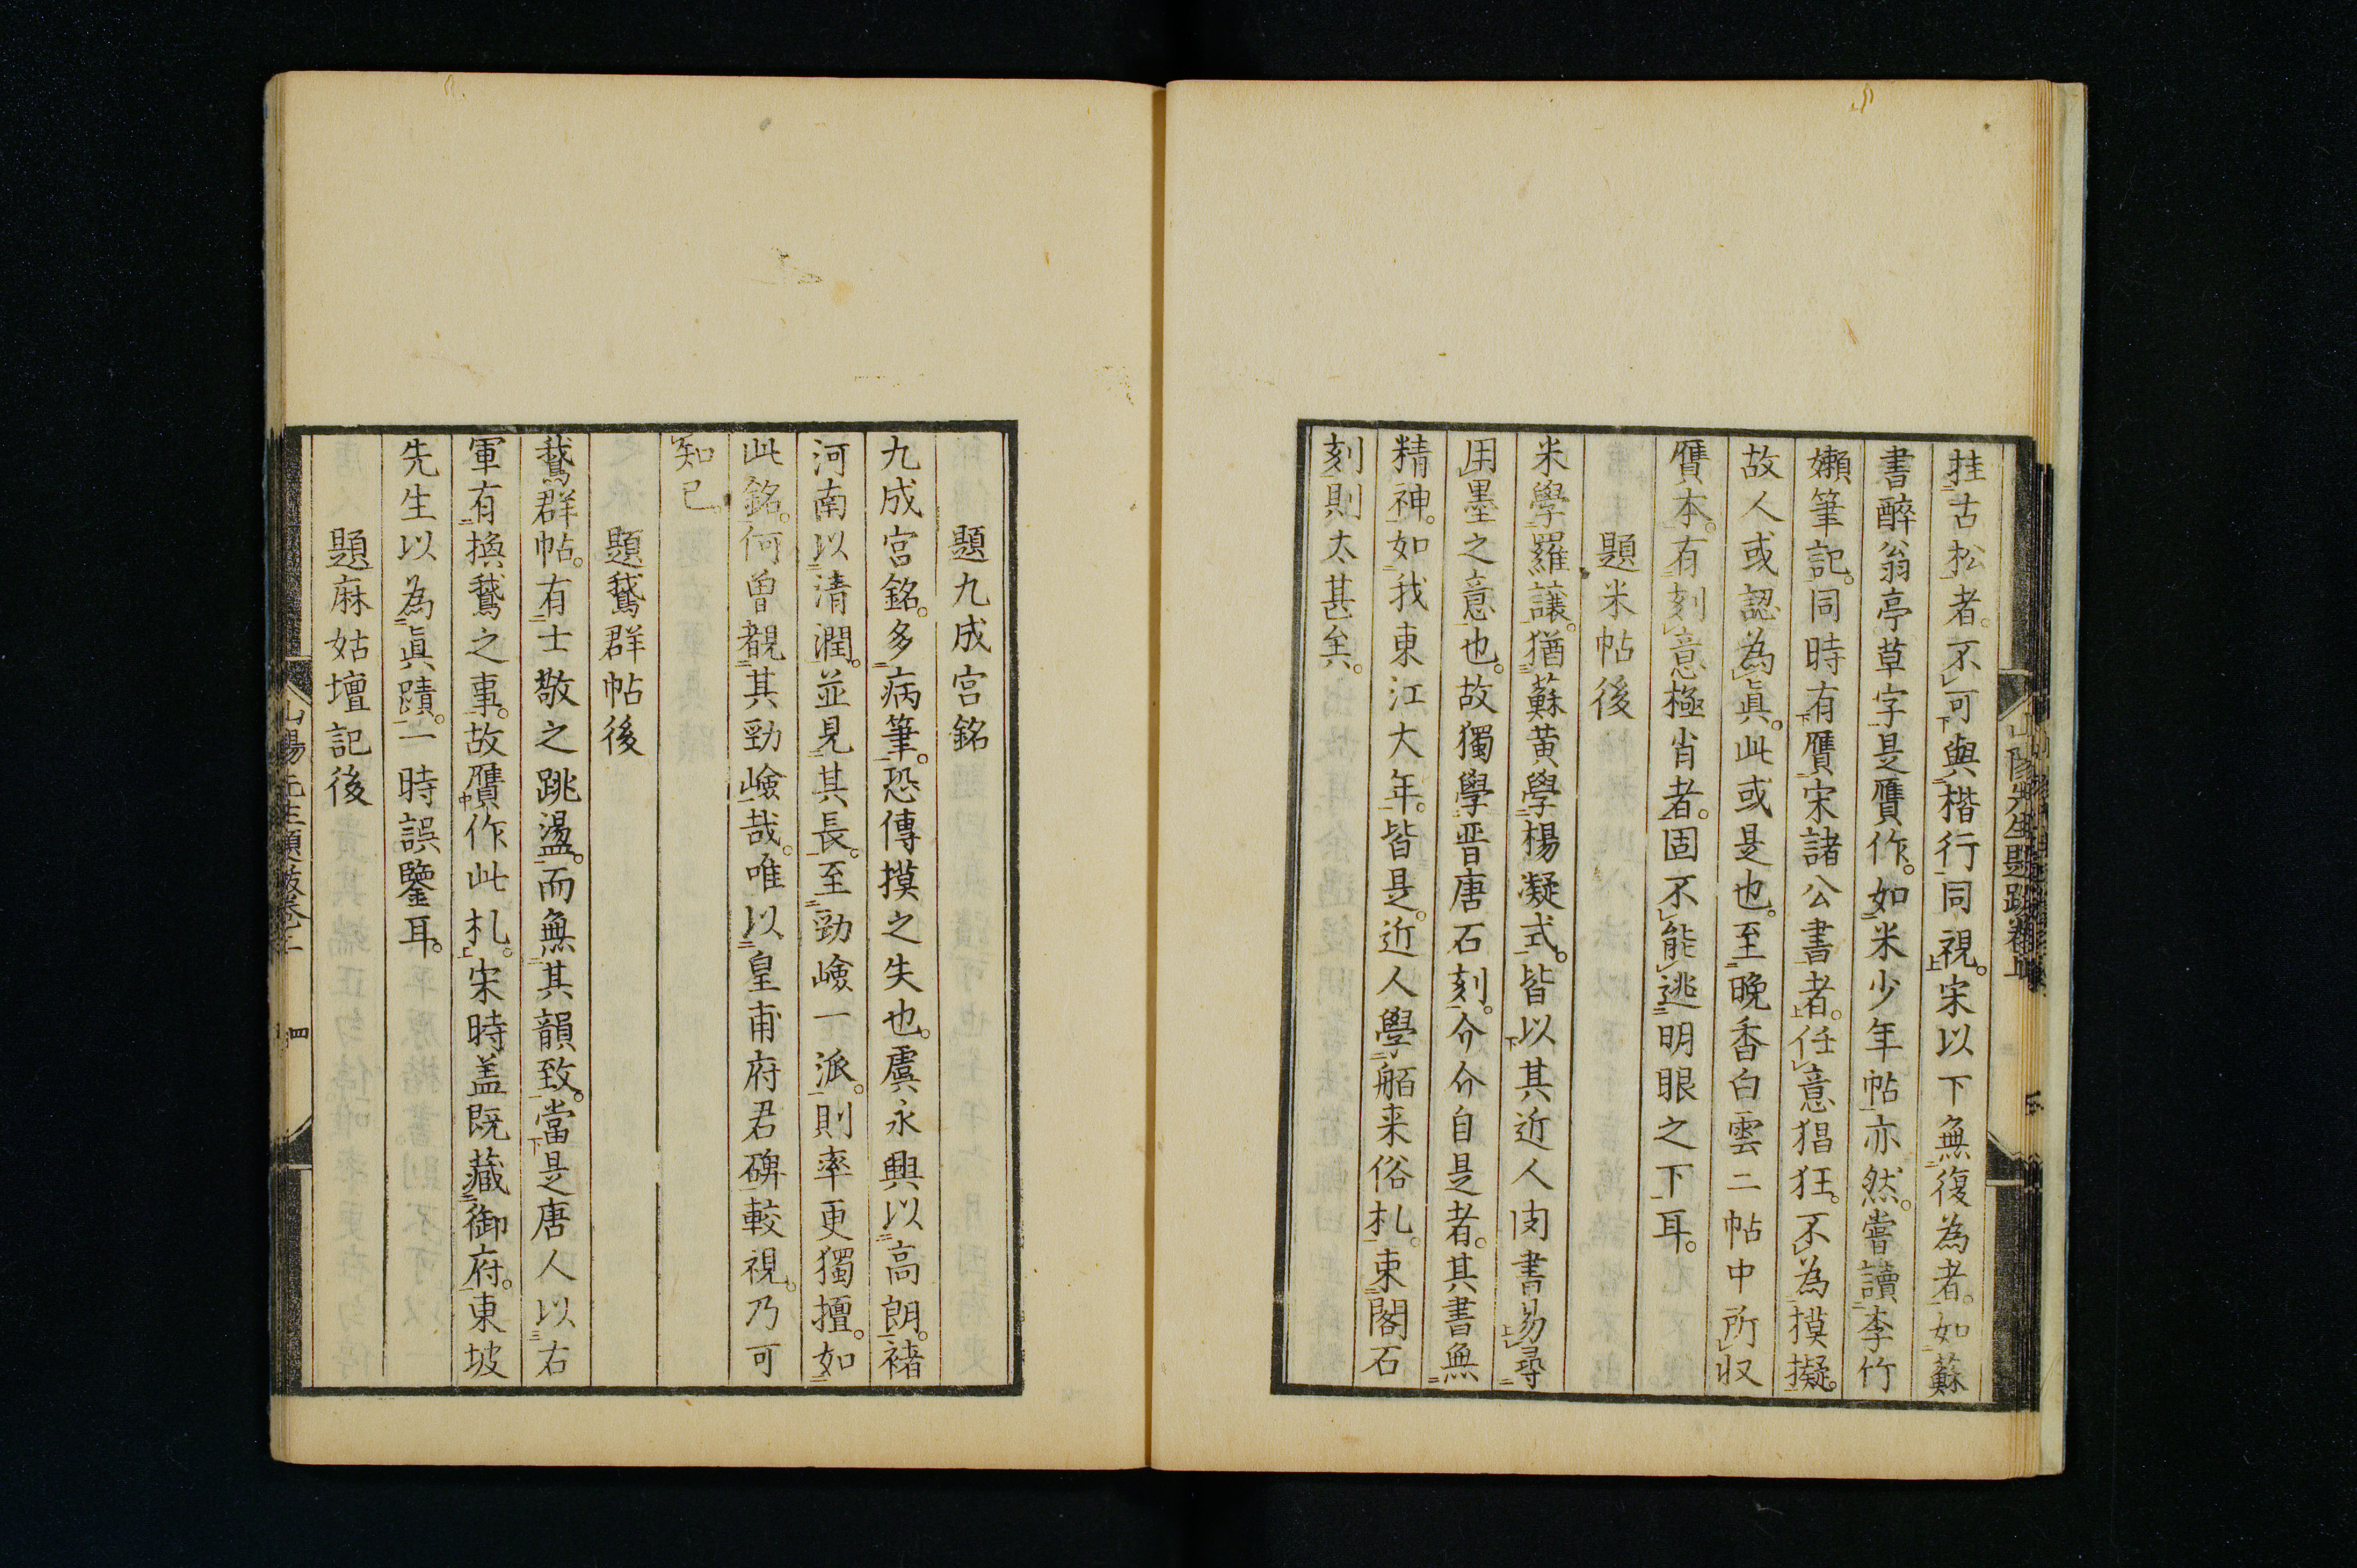 挂古松者。不可與楷行同視。宋以下無復為者。如蘇
書醉翁亭草字是贋作。如米少年帖亦然。嘗讀李竹
嬾筆記。同時有贋宋諸公書者。任意猖狂。不為摸擬。
故人或認為眞。此或是也。至晩香白雲二帖中所収
贋本。有刻意極肖者。固不能逃明眼之下耳。
題米帖後
米學羅讓。猶蘇黄學楊凝式。皆以其近人肉書易尋
用墨之意也。故獨學晋唐石刻。介介自是者。其書無
精神。如我東江大年。皆是。近人學舶来俗札。束閣石
刻則太甚矣。
題九成宮銘
九成宮銘。多病筆。恐傳摸之失也。虞永興以高朗。褚
河南以清潤。並見其長。至勁嶮一派。則率更獨擅。如
此銘。何曽覩其勁嶮哉。唯以皇甫府君碑較視。乃可
知已。
題鵞群帖後
鵞群帖。有士敬之跳盪。而無其韻致。當是唐人以右
軍有換鵞之事。故贋作此札。宋時盖既藏御府。東坡
先生以為眞蹟。一時誤鑒耳。
題麻姑壇記後
山陽先生題跋卷上
四